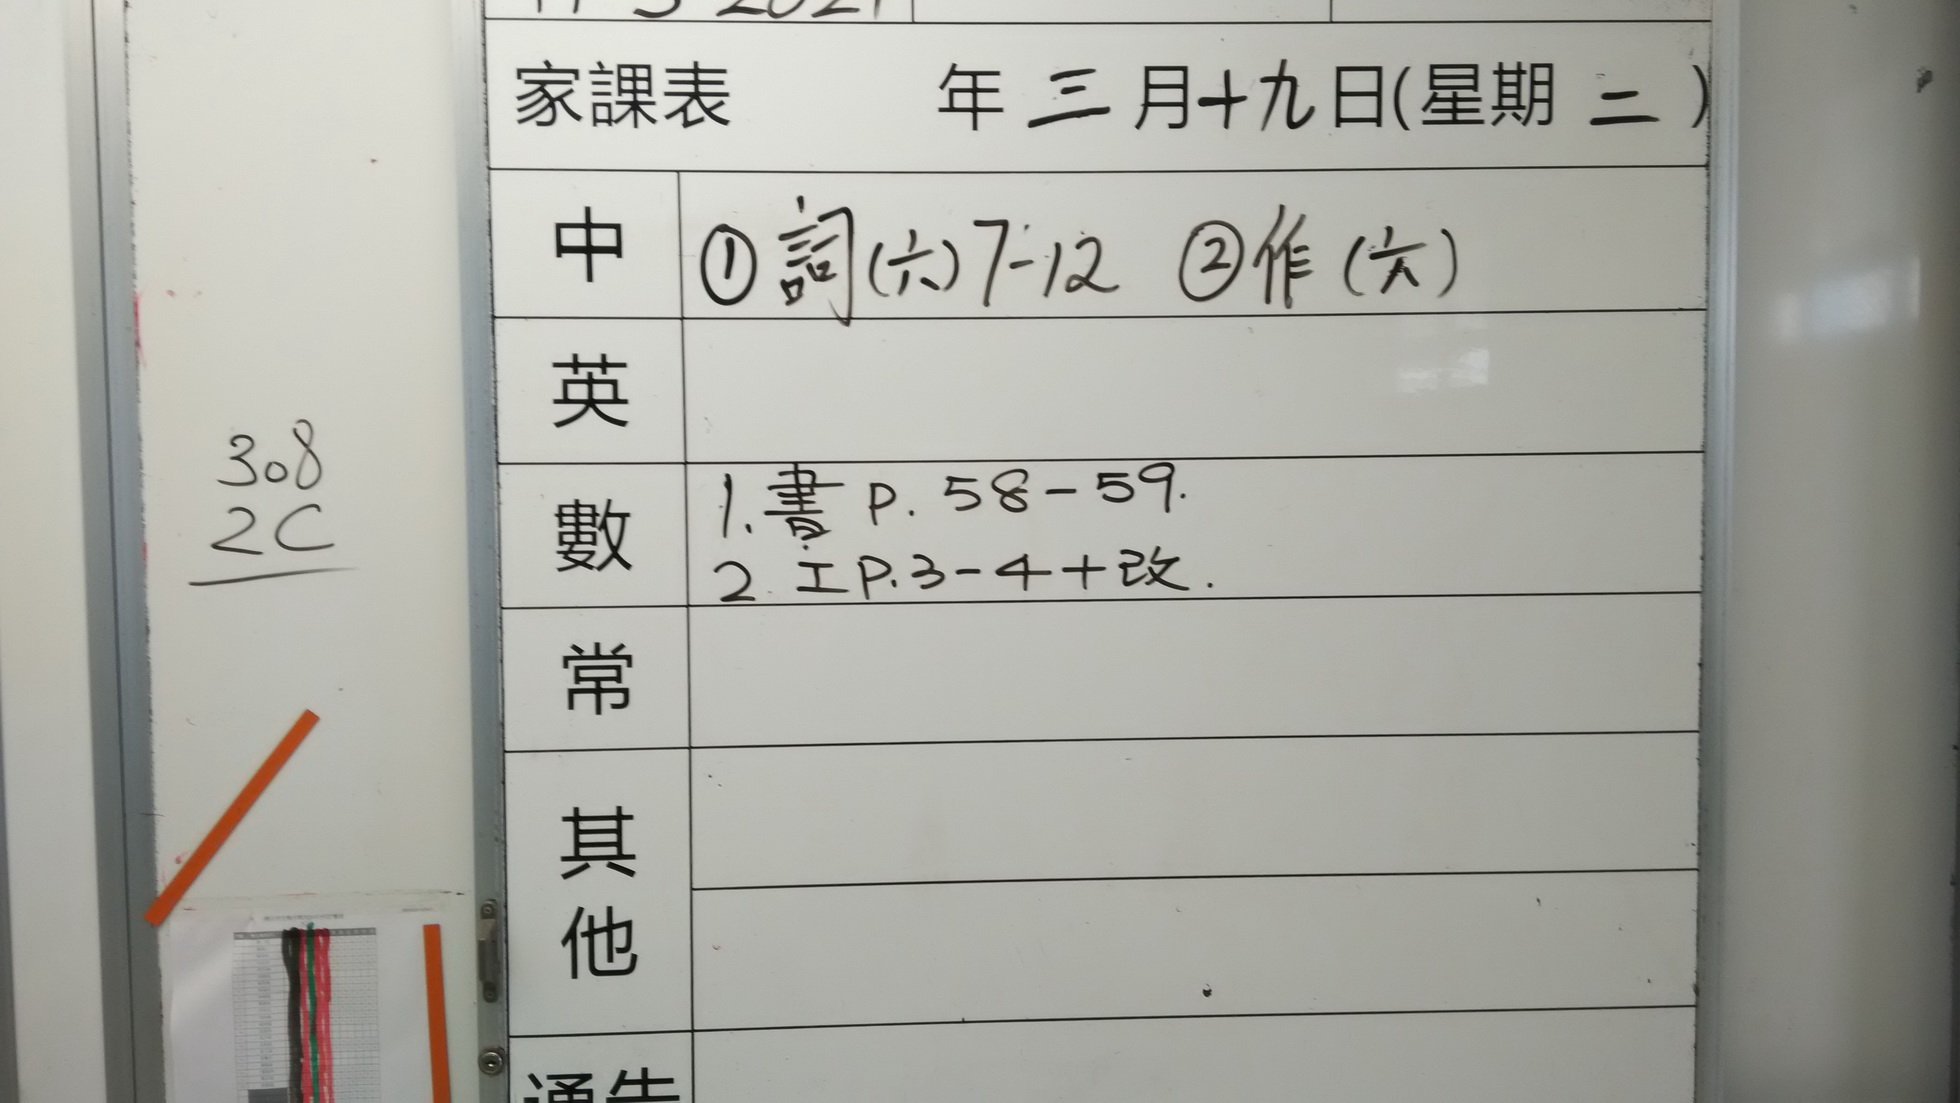 家課表 年 三 月 十九 日(星期 二 )
中 ①詞(六)7-12 ②作(六)
英
數 1.書 P. 58-59.
2. 工 P.3-4+改.
常
其他
通告
308
2C